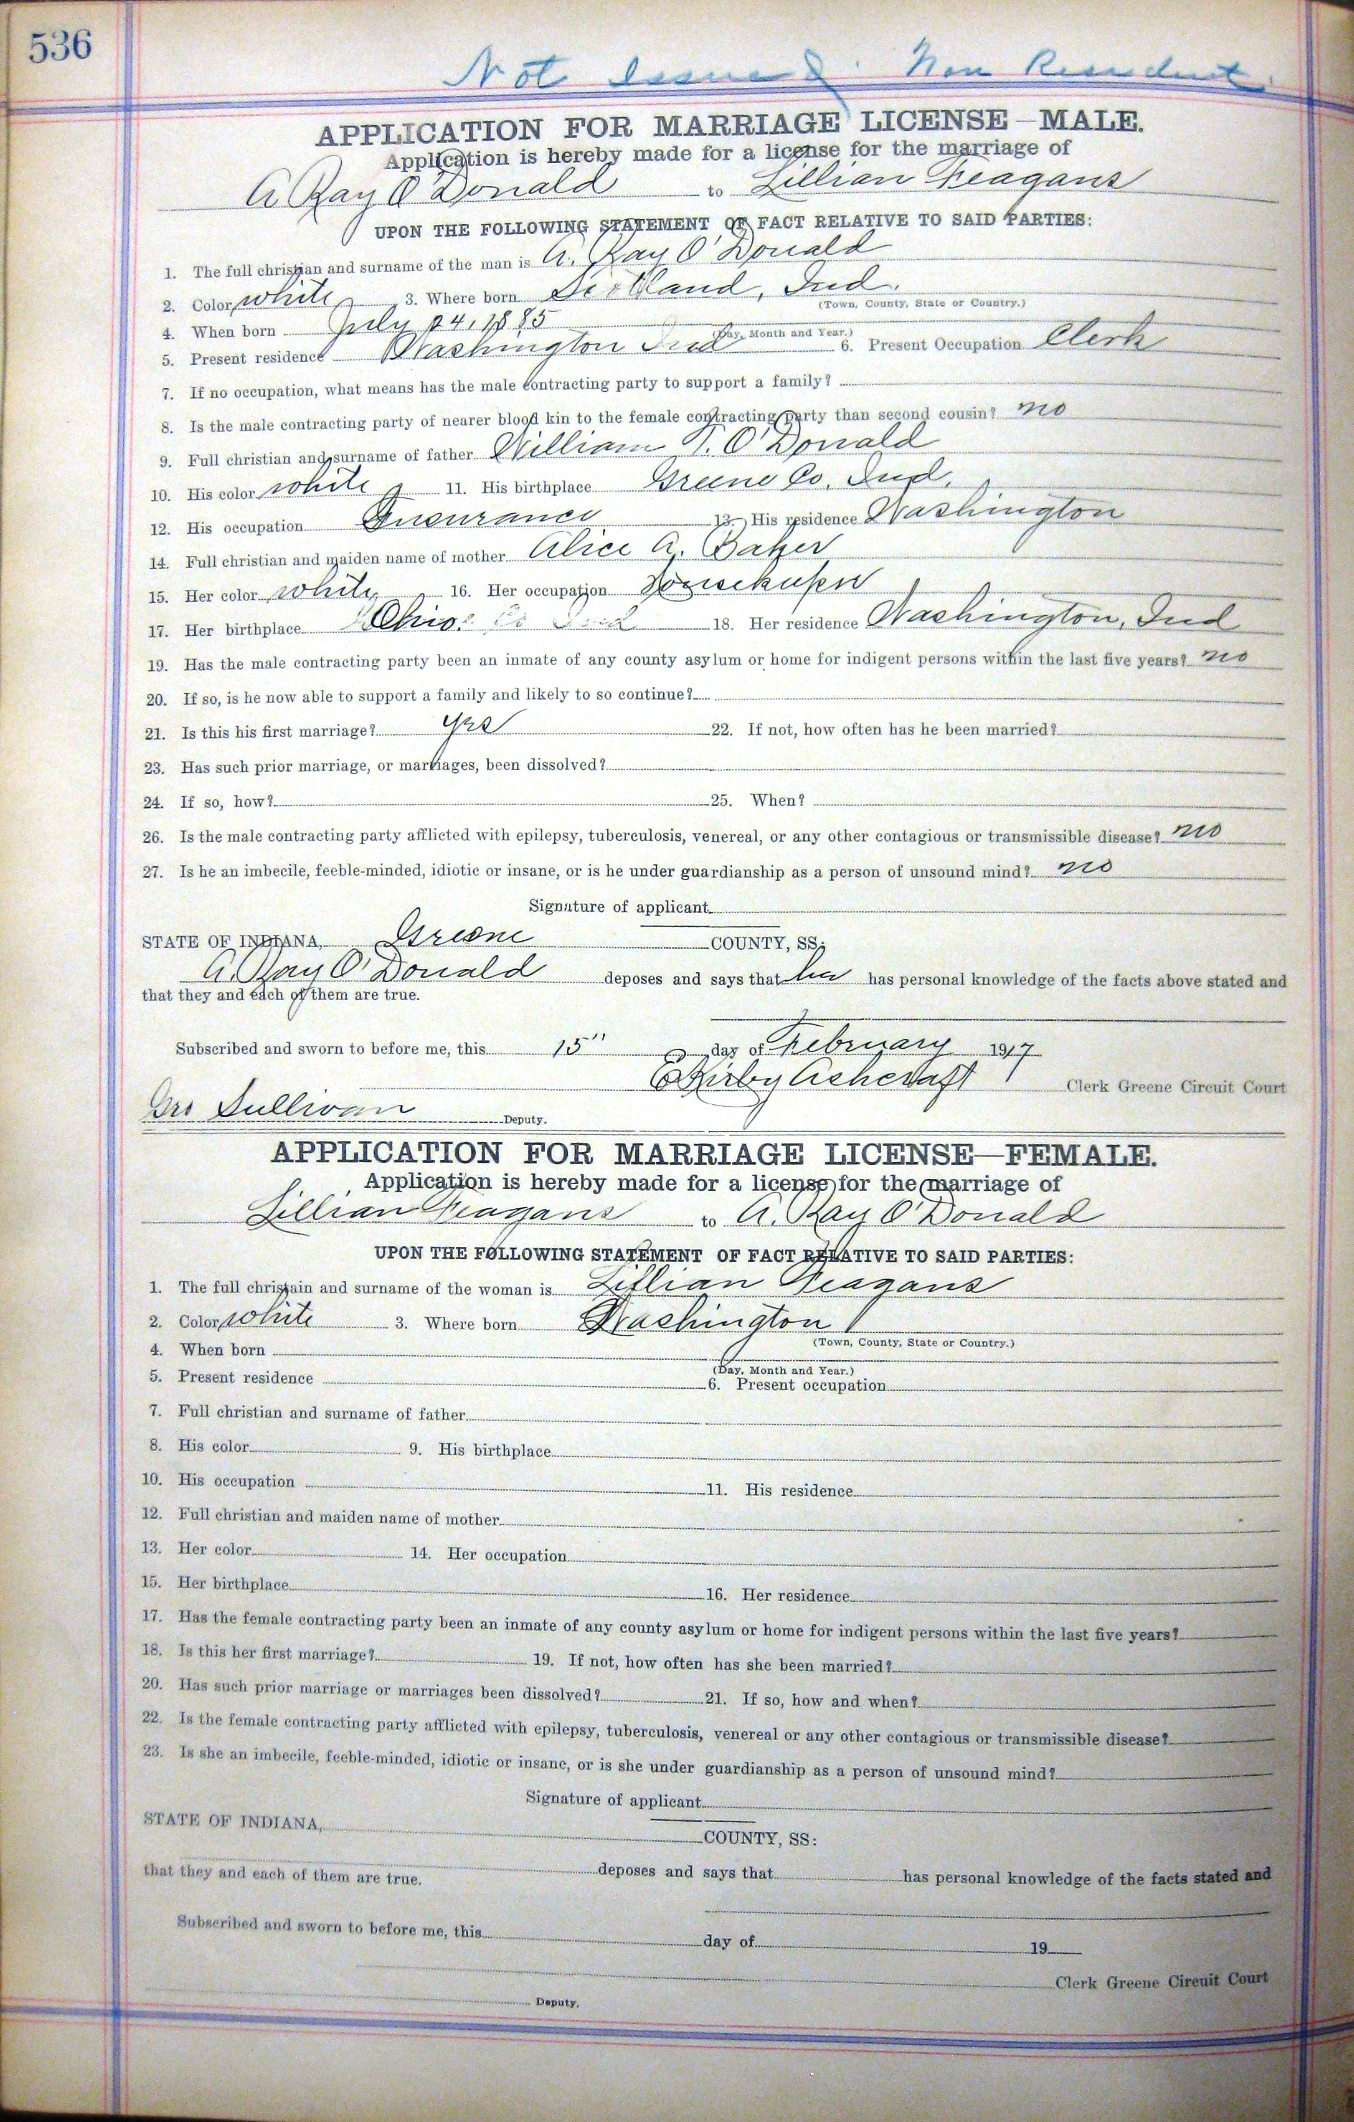 536
Not Issued. Non Resident.
APPLICATION FOR MARRIAGE LICENSE—MALE.
Application is hereby made for a license for the marriage of
A Ray O'Donald to Lillian Feagans
UPON THE FOLLOWING STATEMENT OF FACT RELATIVE TO SAID PARTIES:
1. The full christian and surname of the man is A. Ray O'Donald
2. Color white 3. Where born Scotland, Ind.
(Town, County, State or Country.)
4. When born July 24, 1885
(Day, Month and Year.)
5. Present residence Washington Ind 6. Present Occupation Clerk
7. If no occupation, what means has the male contracting party to support a family?
8. Is the male contracting party of nearer blood kin to the female contracting party than second cousin? no
9. Full christian and surname of father William T. O'Donald
10. His color white 11. His birthplace Greene Co. Ind.
12. His occupation Insurance 13. His residence Washington
14. Full christian and maiden name of mother Alice A. Baker
15. Her color white 16. Her occupation Housekeeper
17. Her birthplace Ohio. Co Ind 18. Her residence Washington, Ind
19. Has the male contracting party been an inmate of any county asylum or home for indigent persons within the last five years? no
20. If so, is he now able to support a family and likely to so continue?
21. Is this his first marriage? yes 22. If not, how often has he been married?
23. Has such prior marriage, or marriages, been dissolved?
24. If so, how? 25. When?
26. Is the male contracting party afflicted with epilepsy, tuberculosis, venereal, or any other contagious or transmissible disease? no
27. Is he an imbecile, feeble-minded, idiotic or insane, or is he under guardianship as a person of unsound mind? no
Signature of applicant
STATE OF INDIANA, Greene COUNTY, SS:
A. Ray O'Donald deposes and says that he has personal knowledge of the facts above stated and
that they and each of them are true.
Subscribed and sworn to before me, this 15" day of February 1917
E Kirby Ashcraft Clerk Greene Circuit Court
Geo Sullivan Deputy.
APPLICATION FOR MARRIAGE LICENSE—FEMALE.
Application is hereby made for a license for the marriage of
Lillian Feagans to A. Ray O'Donald
UPON THE FOLLOWING STATEMENT OF FACT RELATIVE TO SAID PARTIES:
1. The full christain and surname of the woman is Lillian Feagans
2. Color white 3. Where born Washington
(Town, County, State or Country.)
4. When born
(Day, Month and Year.)
5. Present residence 6. Present occupation
7. Full christian and surname of father
8. His color 9. His birthplace
10. His occupation 11. His residence
12. Full christian and maiden name of mother
13. Her color 14. Her occupation
15. Her birthplace 16. Her residence
17. Has the female contracting party been an inmate of any county asylum or home for indigent persons within the last five years?
18. Is this her first marriage? 19. If not, how often has she been married?
20. Has such prior marriage or marriages been dissolved? 21. If so, how and when?
22. Is the female contracting party afflicted with epilepsy, tuberculosis, venereal or any other contagious or transmissible disease?
23. Is she an imbecile, feeble-minded, idiotic or insane, or is she under guardianship as a person of unsound mind?
Signature of applicant
STATE OF INDIANA, COUNTY, SS:
deposes and says that has personal knowledge of the facts stated and
that they and each of them are true.
Subscribed and sworn to before me, this day of 19
Clerk Greene Circuit Court
Deputy.